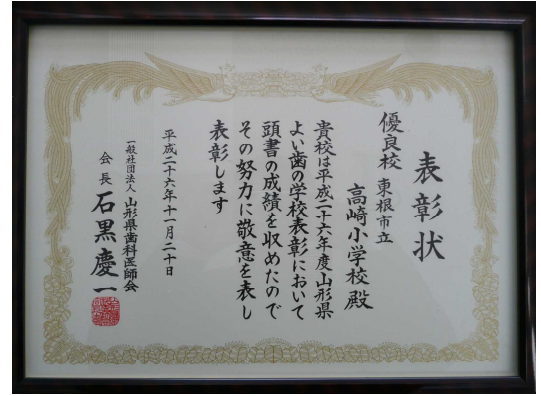 表彰状
優良校 東根市立
高崎小学校殿
貴校は平成二十六年度山形県
よい歯の学校表彰において
頭書の成績を収めたので
その努力に敬意を表し
表彰します
平成二十六年十一月二十日
一般社団法人 山形県歯科医師会
会長 石黒慶一